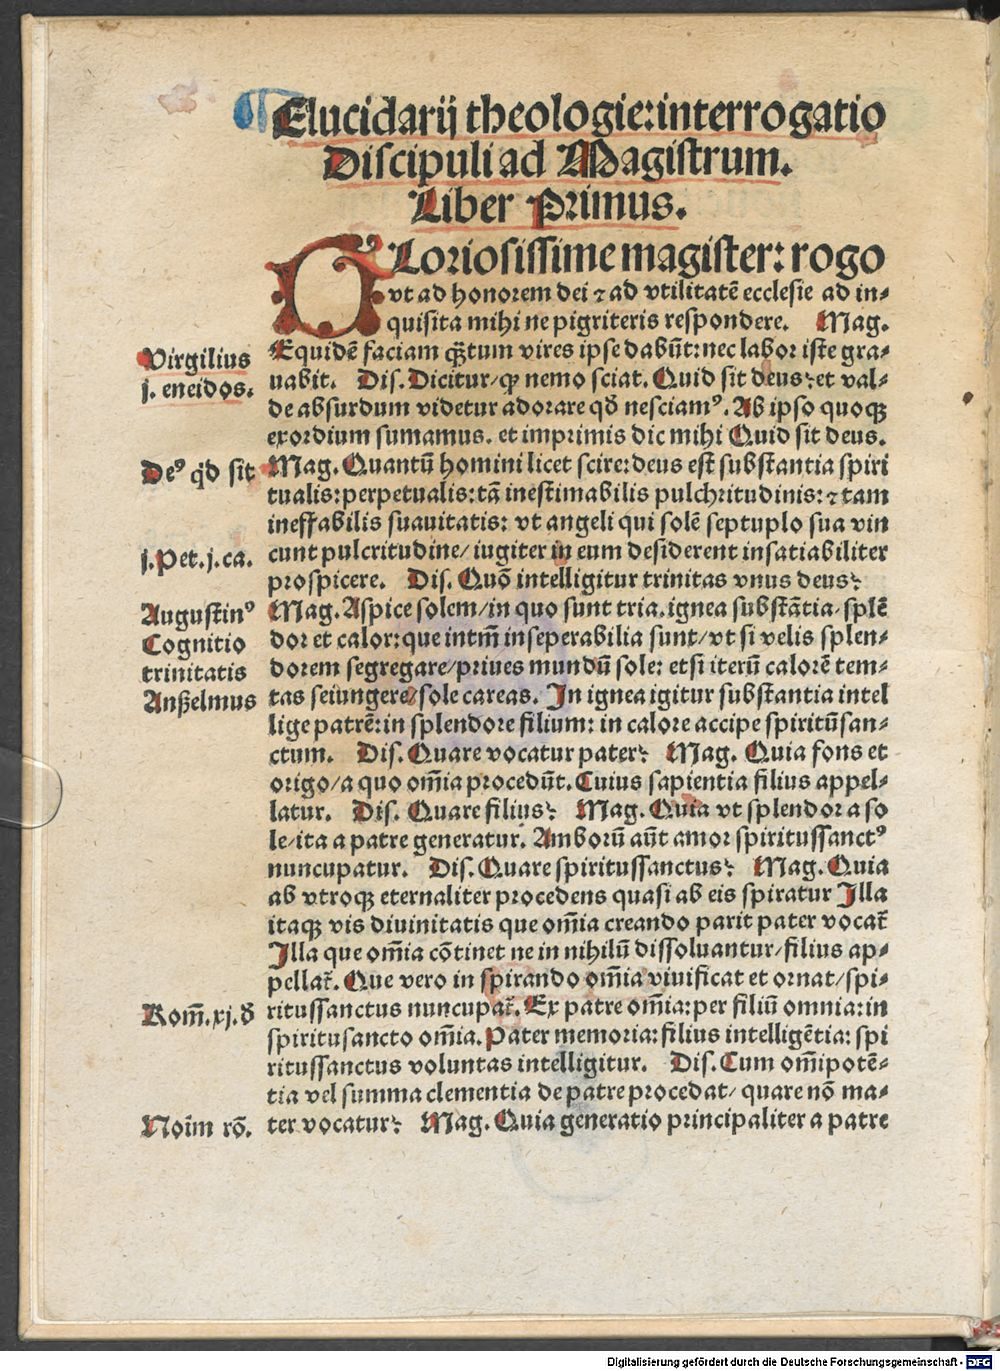 Elucidarij theologie: interrogatio
Discipuli ad Magistrum.
Liber Primus.
GLoriosissime magister: rogo
vt ad honorem dei ⁊ ad vtilitatē ecclesie ad in⸗
quisita mihi ne pigriteris respondere. Mag.
Equidē faciam qꝫtum vires ipse dabūt: nec labor iste gra⸗
uabit. Dis. Dicitur/ qꝙ nemo sciat. Quid sit deus: et val⸗
de absurdum videtur adorare qd̄ nesciamꝰ. Ab ipso quoqꝫ
exordium sumamus. et imprimis dic mihi Quid sit deus.
Mag. Quantū homini licet scire: deus est substantia spiri
tualis: perpetualis: tā inestimabilis pulchritudinis: ⁊ tam
ineffabilis suauitatis: vt angeli qui solē septuplo sua vin
cunt pulcritudine/ iugiter in eum desiderent insatiabiliter
prospicere. Dis. Quō intelligitur trinitas vnus deus:
Mag. Aspice solem/ in quo sunt tria. ignea substātia/ splē
dor et calor: que intm̄ inseperabilia sunt/ vt si velis splen⸗
dorem segregare/ priues mundū sole: etsi iterū calorē tem⸗
tas seiungere/ sole careas. In ignea igitur substantia intel
lige patrē: in splendore filium: in calore accipe spiritūsan⸗
ctum. Dis. Quare vocatur pater: Mag. Quia fons et
origo/ a quo om̄ia procedūt. Cuius sapientia filius appel⸗
latur. Dis. Quare filius: Mag. Quia vt splendor a so
le/ ita a patre generatur. Amborū aūt amor spiritussanctꝰ
nuncupatur. Dis. Quare spiritussanctus: Mag. Quia
ab vtroqꝫ eternaliter procedens quasi ab eis spiratur Illa
itaqꝫ vis diuinitatis que om̄ia creando parit pater vocat̄
Illa que om̄ia cōtinet ne in nihilū dissoluantur/ filius ap⸗
pellat̄. Que vero in spirando om̄ia viuificat et ornat/ spi⸗
ritussanctus nuncupat̄. Ex patre om̄ia: per filiū omnia: in
spiritusancto om̄ia. Pater memoria: filius intelligētia: spi
ritussanctus voluntas intelligitur. Dis. Cum om̄ipotē⸗
tia vel summa clementia de patre procedat/ quare nō ma⸗
ter vocatur: Mag. Quia generatio principaliter a patre
Virgilius
j. eneidos.
Deꝰ qd̄ sit
j. Pet. j. ca.
Augustinꝰ
Cognitio
trinitatis
Anßelmus
Rom̄. xj. d
Noīm rō.
Digitalisierung gefördert durch die Deutsche Forschungsgemeinschaft - DFG